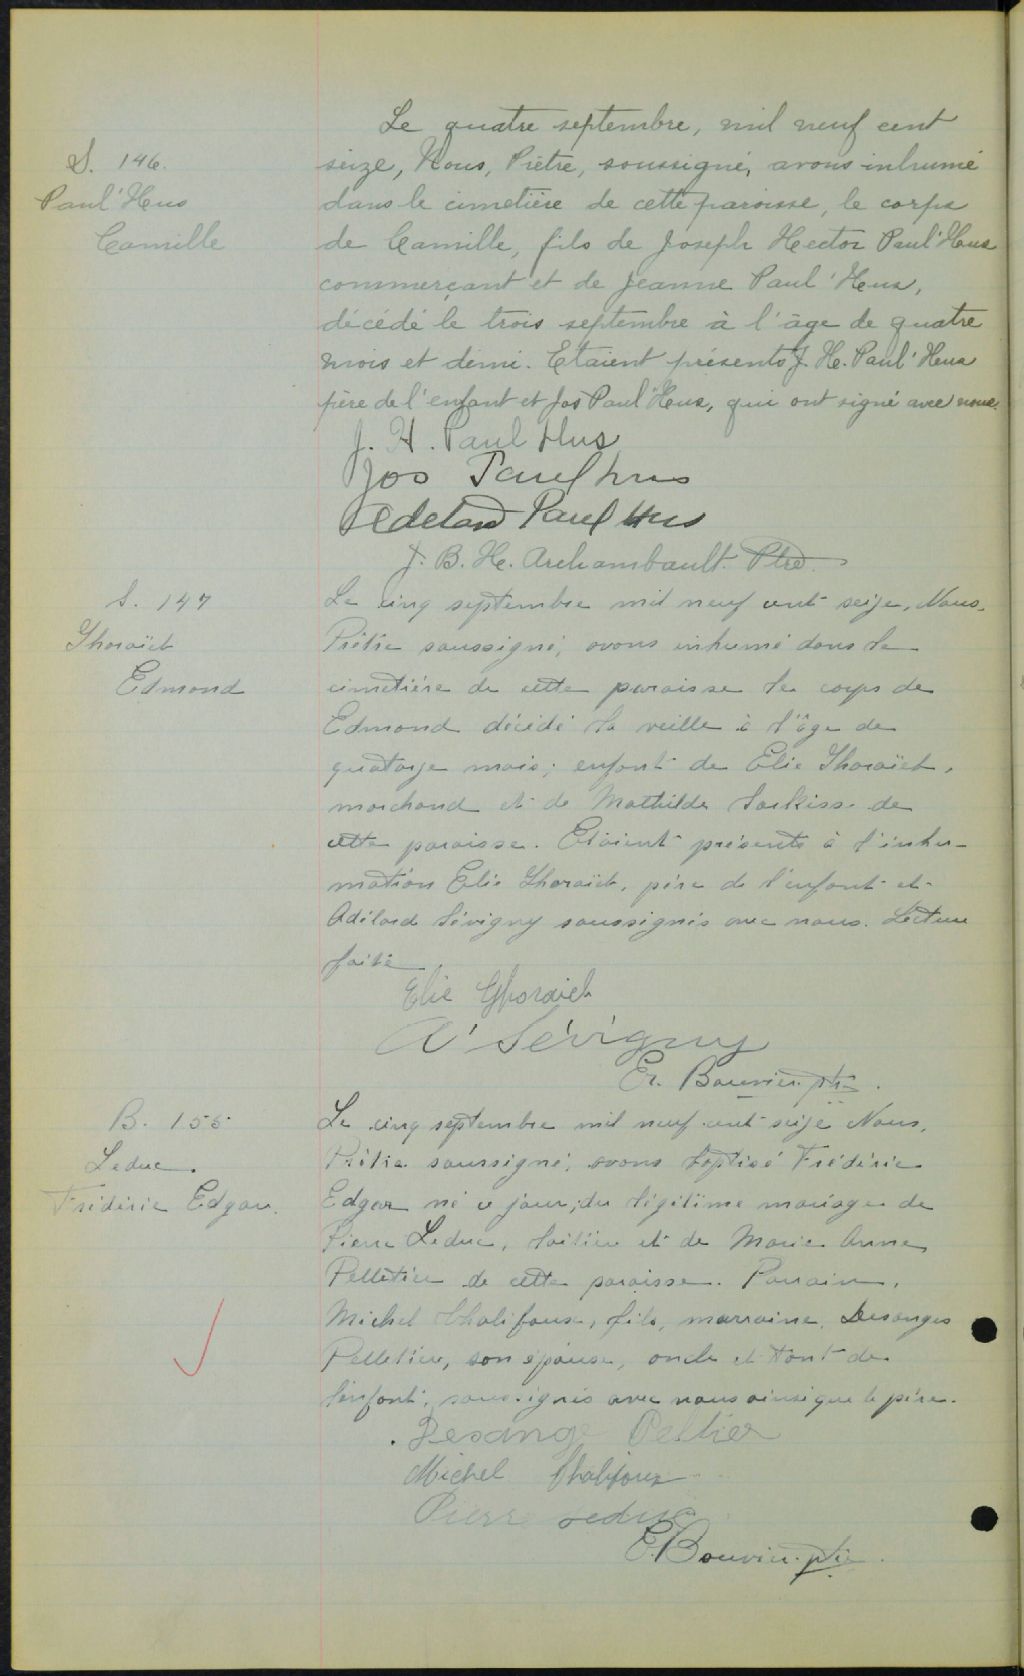 Le quatre septembre, mil neuf cent
S. 146.
seize, Nous, Prêtre, soussigné, avons inhumé
Paul'Hus
dans le cimetière de cette paroisse, le corps
Camille
de Camille, fils de Joseph Hector Paul'Hus
commerçant et de Jeanne Paul'Hus,
décédé le trois septembre à l'âge de quatre
mois et demi. Etaient présents J. H. Paul'Hus
père de l'enfant et Jos Paul'Hus, qui ont signé avec nous.
J. H. Paul Hus
Jos Paulhus
Adelard Paul Hus
J. B. H. Archambault. Ptre.
S. 147
Le cinq septembre mil neuf cent seize, Nous,
Ghoraïeb
Prêtre soussigné, avons inhumé dans le
Edmond
cimetière de cette paroisse le corps de
Edmond décédé la veille à l'âge de
quatorze mois; enfant de Elie Ghoraïeb,
marchand et de Mathilde Sarkiss de
cette paroisse. Etaient présents à l'inhu-
mation Elie Ghoraïeb, père de l'enfant et
Adélard Sévigny soussignés avec nous. Lecture
faite.
Elie Ghoraieb
A Sévigny
Er. Bouvier ptre.
B. 155
Le cinq septembre mil neuf cent seize Nous,
Leduc.
Prêtre soussigné, avons baptisé Frédéric
Frédéric Edgar.
Edgar né ce jour, du légitime mariage de
Pierre Leduc, laitier et de Marie Anne
Pelletier de cette paroisse. Parrain,
Michel Chalifoux, fils, marraine, Desanges
Pelletier, son épouse, oncle et tante de
l'enfant, soussignés avec nous ainsi que le père.
Desange Peltier
Michel Chalifoux
Pierre Leduc
E. Bouvier ptre.